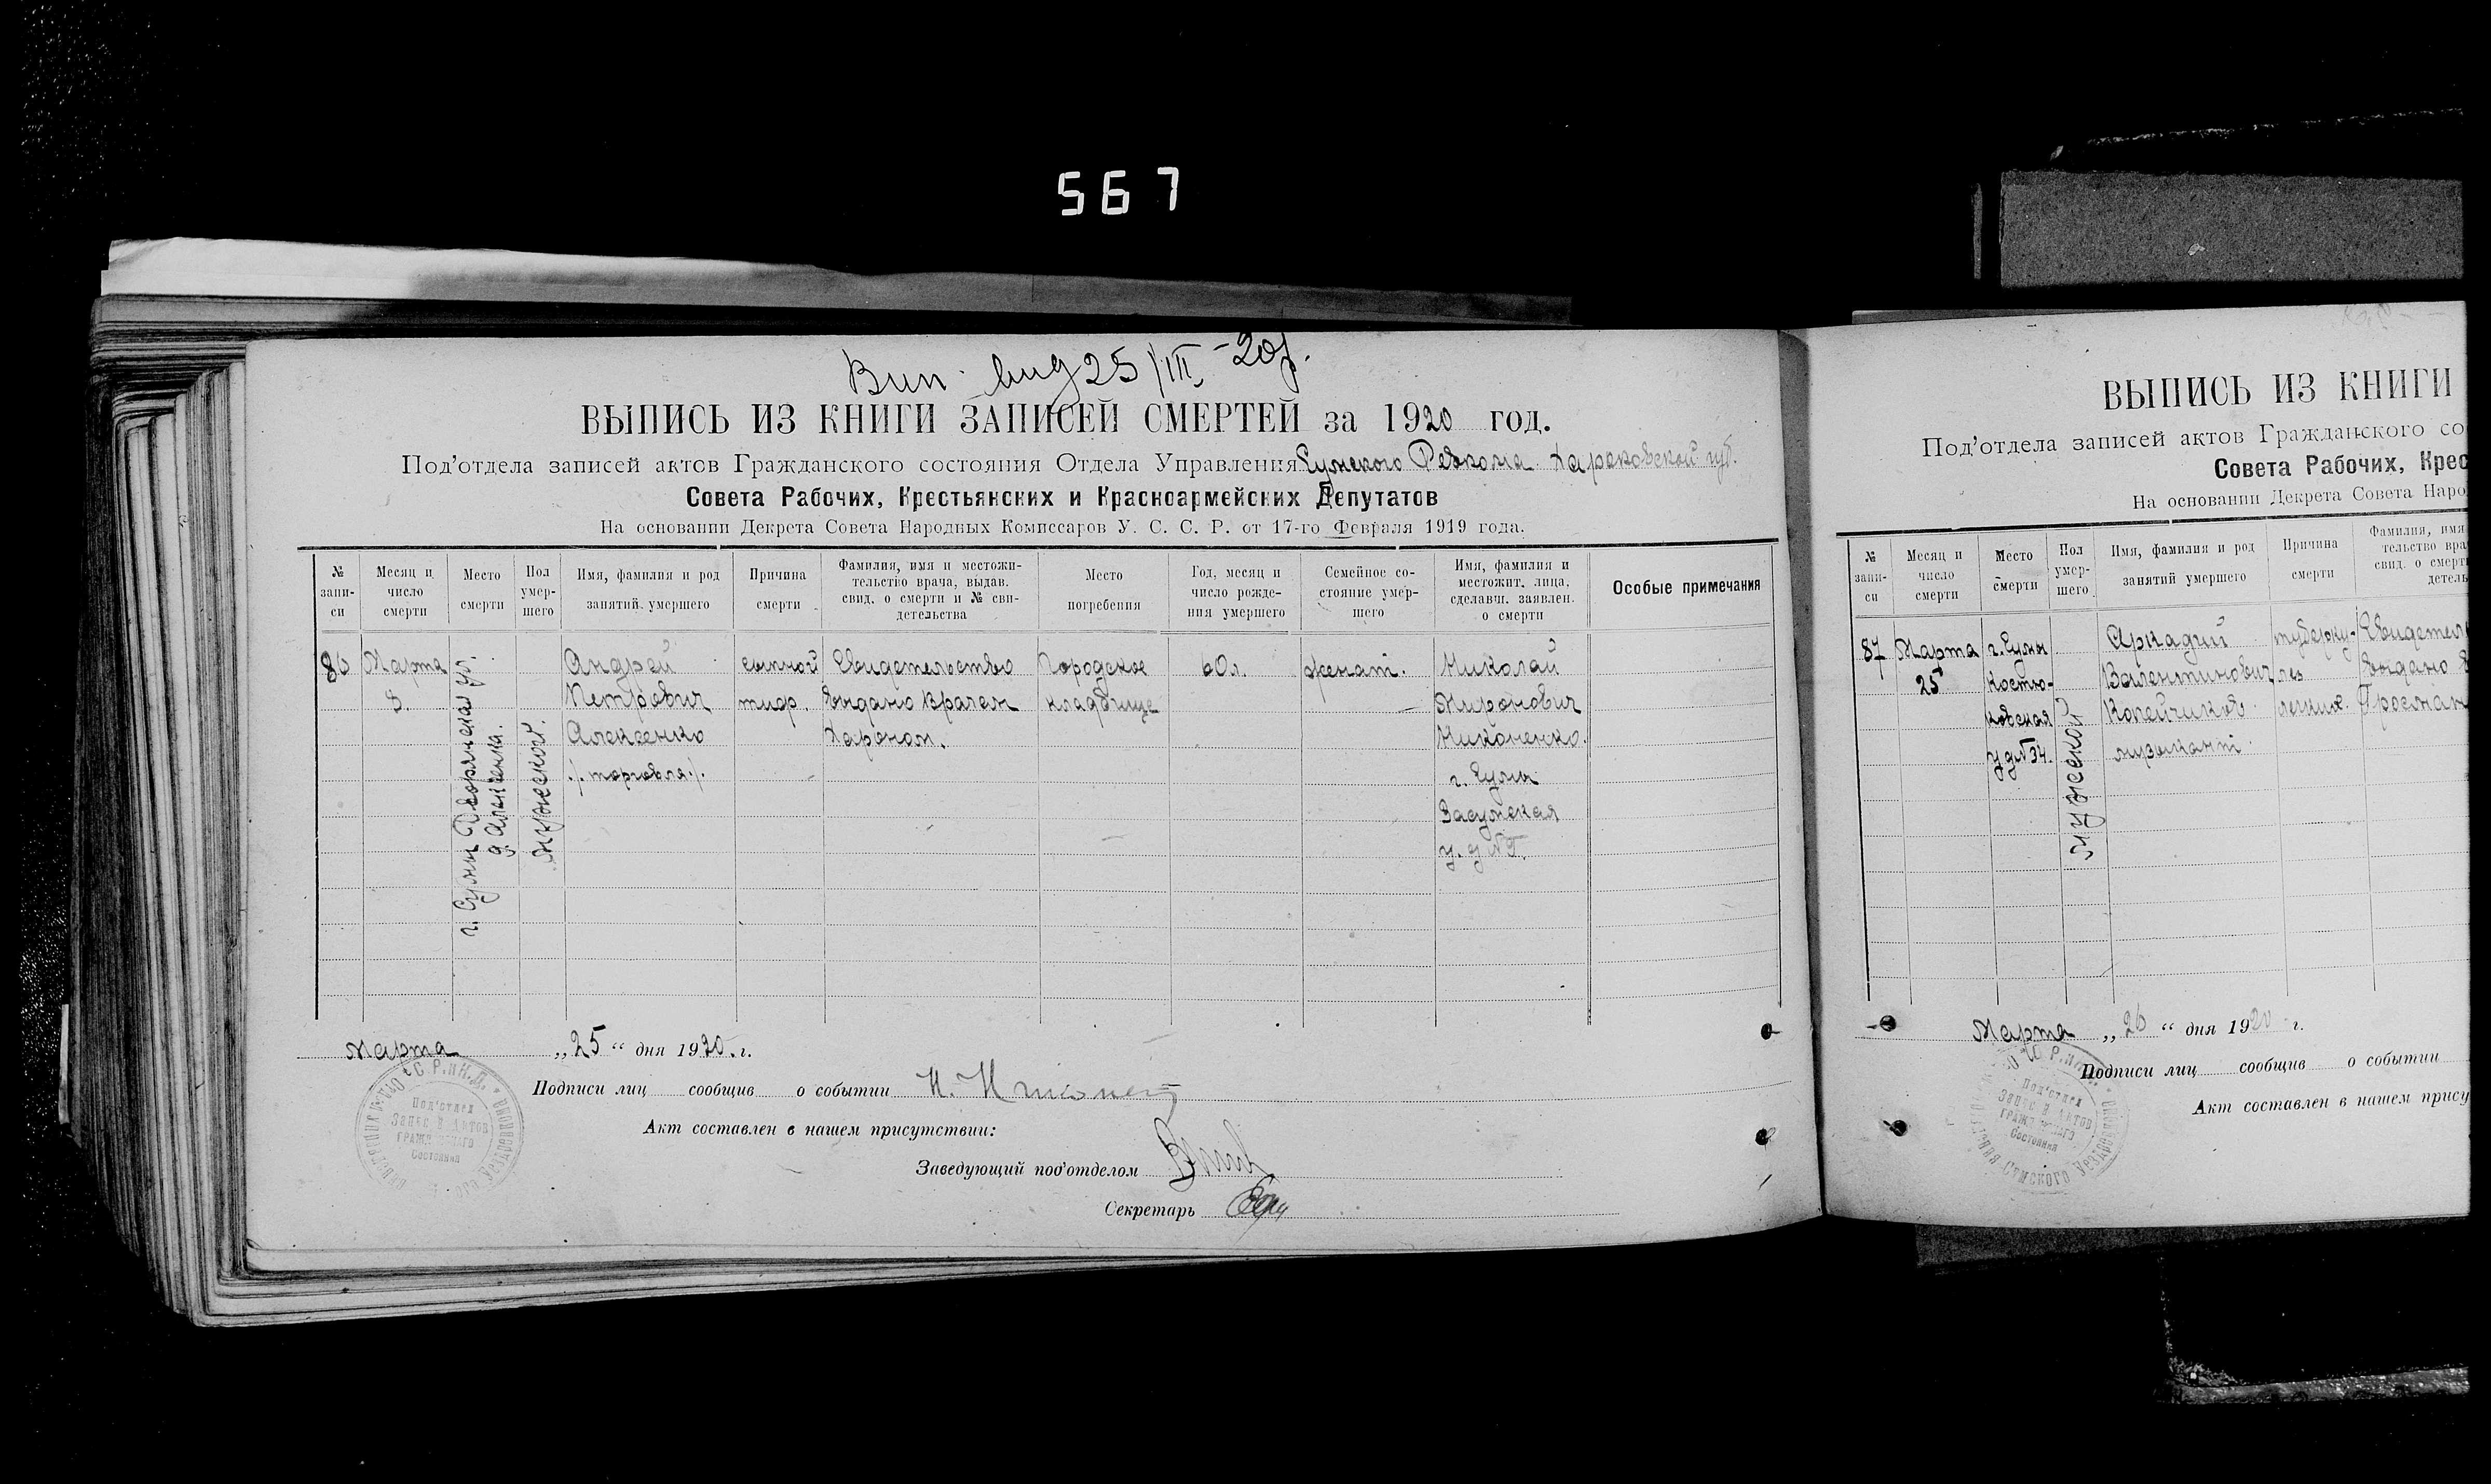 567
Вип. вид 25/III - 20 г.
ВЫПИСЬ ИЗ КНИГИ ЗАПИСЕЙ СМЕРТЕЙ за 1920 год.
Под'отдела записей актов Гражданского состояния Отдела Управления Сумского Ревкома Харьковской губ.
Совета Рабочих, Крестьянских и Красноармейских Депутатов
На основании Декрета Совета Народных Комиссаров У. С. С. Р. от 17-го Февраля 1919 года.
№ записи
Месяц и число смерти
Место смерти
Пол умершего
Имя, фамилия и род занятий умершего
Причина смерти
Фамилия, имя и местожительство врача, выдав. свид. о смерти и № свидетельства
Место погребения
Год, месяц и число рождения умершего
Семейное состояние умершего
Имя, фамилия и местожит. лица, сделавш. заявлен. о смерти
Особые примечания
86
Марта
8.
г. Сумы Дворянская ул.
д. Алексенка.
мужеской.
Андрей
Петрович
Алексенко
./. торговля ./.
сыпной
тиф.
Свидетельство
выдано врачем
Хароном.
Городское
кладбище
60 л.
женат.
Николай
Миронович
Никоненко.
г. Сумы
Засумская
у. д №
Марта „25“ дня 1920. г.
Подписи лиц сообщив о событии Н.
Акт составлен в нашем присутствии:
Заведующий под'отделом
Секретарь
Под'отдел
Записи Актов
Гражданского
Состояния
ВЫПИСЬ ИЗ КНИГИ
Под'отдела записей актов Гражданского со
Совета Рабочих, Крес
На основании Декрета Совета Наро
№ записи
Месяц и число смерти
Место смерти
Пол умершего
Имя, фамилия и род занятий умершего
Причина смерти
Фамилия, имя
тельство вра
свид. о смерт
детель
87
Марта
25
г. Сумы
Костю-
ковская
у д №34.
мужеской
Аркадий
Валентинович
Копейчиков
музыкант.
туберку-
лез
легких.
Свидетел
выдано в
Гросман
Марта „26“ дня 1920 г.
Подписи лиц сообщив о событии
Акт составлен в нашем прису
Под'отдел
Записи Актов
Гражданского
Состояния
Сумского Уездревкома